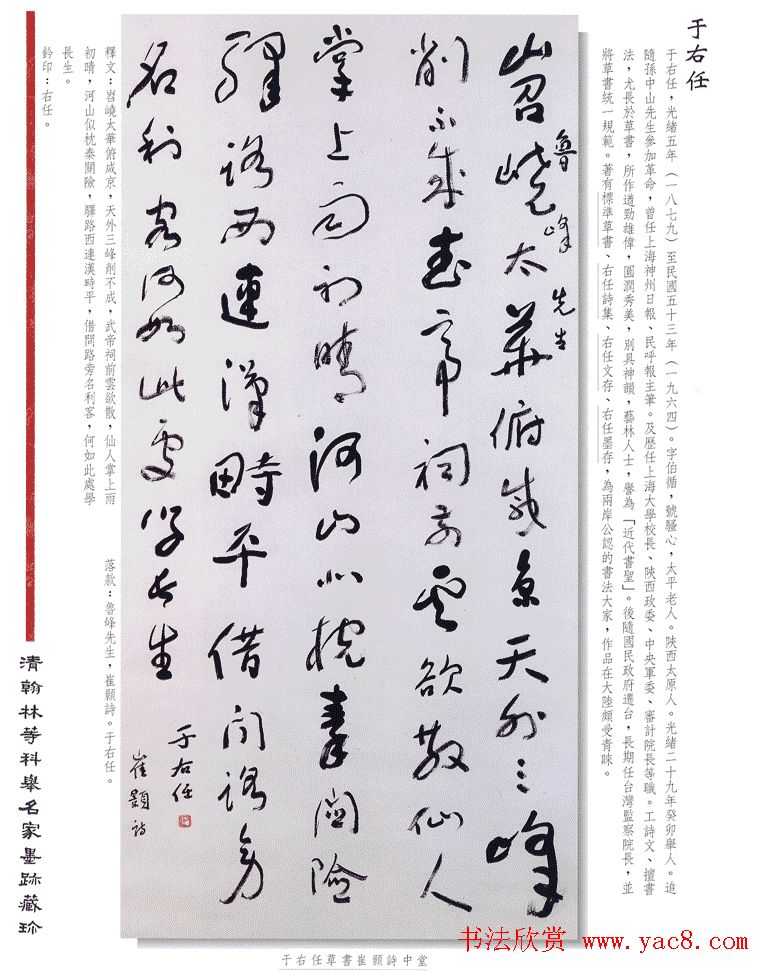 于右任
于右任，光緒五年（一八七九）至民國五十三年（一九六四）。字伯循，號騷心，太平老人。陝西太原人。光緒二十九年癸卯舉人。追
隨孫中山先生參加革命，曾任上海神州日報、民呼報主筆。及歷任上海大學校長、陝西政委、中央軍委、審計院長等職。工詩文、擅書
法，尤長於草書，所作遒勁雄偉，圓潤秀美，別具神韻，藝林人士，譽為「近代書聖」。後隨國民政府遷台，長期任台灣監察院長，並
將草書統一規範。著有標準草書、右任詩集、右任文存、右任墨存，為兩岸公認的書法大家，作品在大陸頗受青睞。
魯峰先生
岧嶢太華俯咸京天外三峰
削不成武帝祠前雲欲散仙人
掌上雨初晴河山北枕秦關險
驛路西連漢畤平借問路旁
名利客何如此處學長生
于右任
崔顥詩
釋文：岧嶢太華俯咸京，天外三峰削不成，武帝祠前雲欲散，仙人掌上雨
初晴，河山似枕秦關險，驛路西連漢畤平，借問路旁名利客，何如此處學
長生。
落款：魯峰先生，崔顥詩。于右任。
鈐印：右任。
清翰林等科舉名家墨跡藏珍
于右任草書崔顥詩中堂
书法欣赏 www.yac8.com